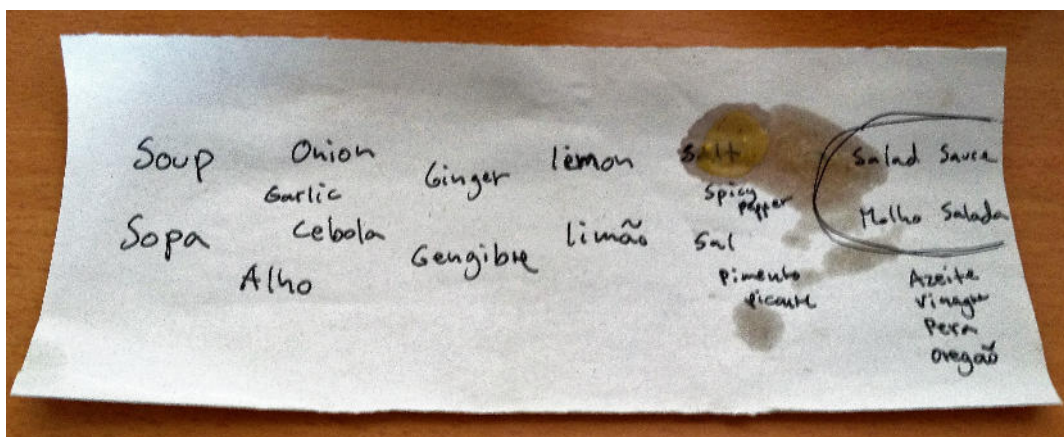 Soup
Onion
Garlic
Ginger
lemon
Salt
Spicy
pepper
Salad Sauce
Sopa
Cebola
Alho
Gengibre
limão
Sal
Pimento
picante
Molho Salada
Azeite
Vinagre
Pera
Oregão